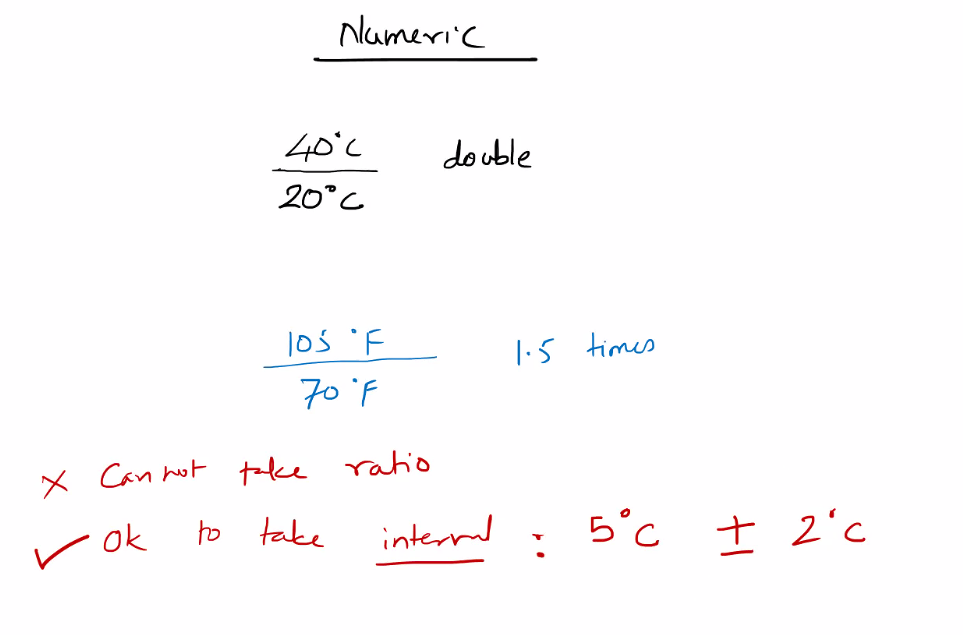 Numeric
40°C double
20°C
105 °F 1.5 times
70 °F
× Cannot take ratio
✓ Ok to take interval : 5°C ± 2°C